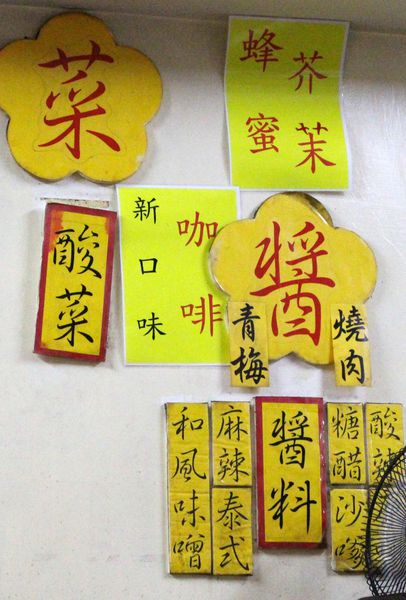 菜
蜂蜜
芥茉
酸菜
新口味
咖啡
醬
青梅
燒肉
和風味噌
麻辣
泰式
醬料
糖醋
沙嗲
酸辣